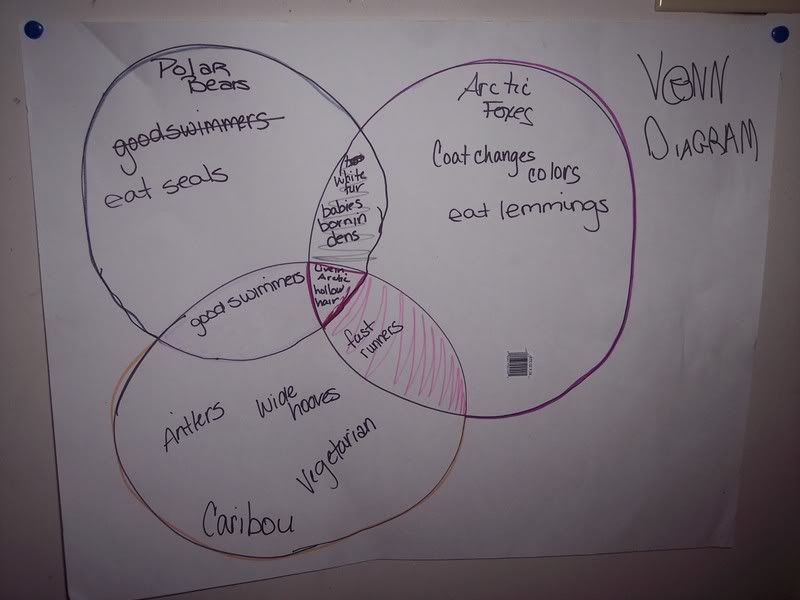 Polar
Bears
goodswimmers
eat seals
Arctic
Foxes
Coat changes
colors
eat lemmings
VENN
DIAGRAM
white
fur
babies
born in
dens
live in
Arctic
hollow
hair
good swimmers
fast
runners
Antlers
Wide
hooves
Vegetarian
Caribou